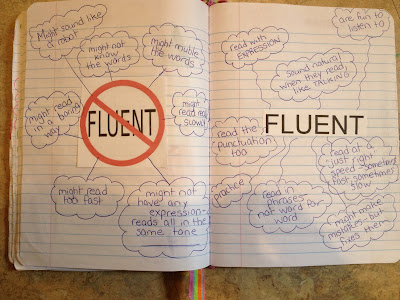 Might sound like
a robot
might not
know the
words
might muble
the words
might read
in a boring
way
FLUENT
might
read
SLOWLY
might read
too fast
might not
have any
expression-
reads all in the
same tone
are fun to
listen to
read with
EXPRESSION
sound natural
when they read
like TALKING
read the
punctuation
too
FLUENT
practice
read in
phrases
not word for
word
read at a
just right
speed-sometimes
fast sometimes
slow
might make
mistakes but
fixes them